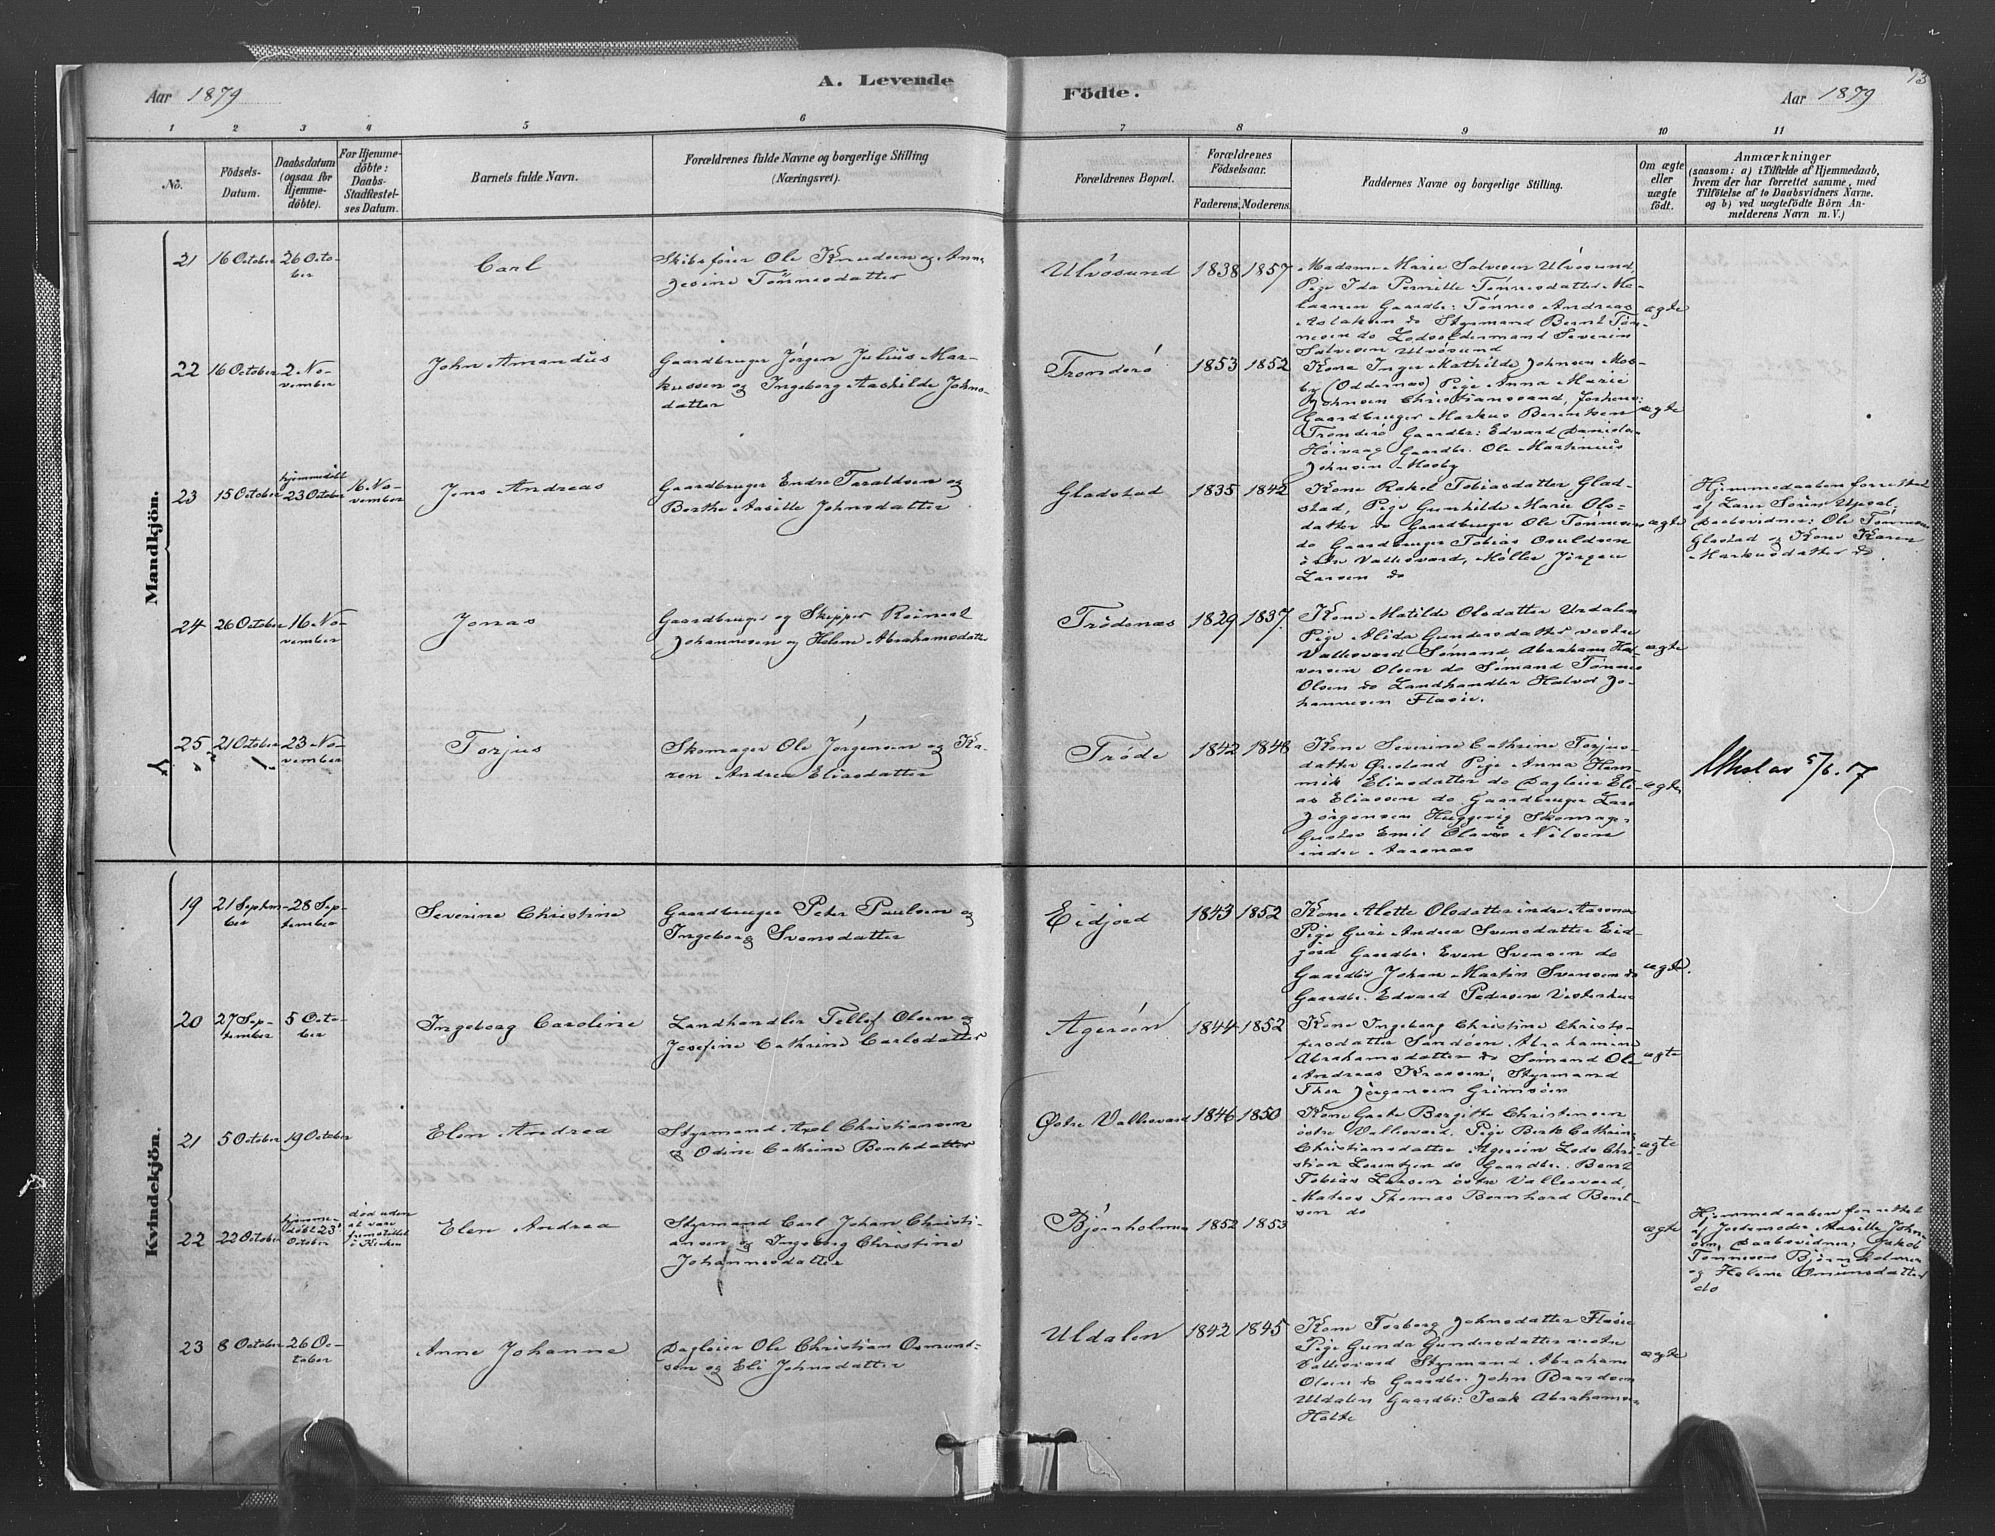 Aar 1879
A. Levende
Födte.
Aar 1879
13
1 2 3 4 5 6 7 8 9 10 11
No.
Födsels-
Datum.
Daabsdatum
(ogsaa for
Hjemme-
döbte).
For Hjemme-
döbte:
Daabs-
Stadfæstel-
ses Datum.
Barnets fulde Navn.
Forældrenes fulde Navne og borgerlige Stilling
(Næringsvei).
Forældrenes Bopæl.
Forældrenes
Födselsaar.
Faderens. Moderens.
Faddernes Navne og borgerlige Stilling.
Om ægte
eller
uægte
födt.
Anmærkninger
(saasom: a) i Tilfælde af Hjemmedaab,
hvem der har forrettet samme, med
Tilföielse af to Daabsvidners Navne.
og b) ved uægtefödte Börn An-
melderens Navn m. V.)
Mandkjön.
21
16 October
26 Octo-
ber
Carl
Skibsfører Ole Knudsen og Anne
Jesine Tønnesdatter
Ulvøsund
1838
1857
Madame Marie Salvesen Ulvøsund,
Pige Ida Pernille Tønnesdatter
Gaardbr: Tønnes Andreas
Aslaksen do Styrmand Bernt Tøn-
nesen do Lodsoldermand Severin
Salvesen Ulvøsund
ægte
22
16 October
2 No-
vember
John Amandus
Gaardbruger Jørgen Julius Mar-
kussen og Ingeborg Aashilde Johns-
datter
Trønderø
1853
1852
Kone Inger Mathilde Johnsen Mos-
by (Oddernes) Pige Anna Marie
Johnsen Christianssand,
Gaardbruger Markus Berentsen
Trønderø Gaardbr: Edvard Daniels-
Høivaag Gaardbr. Ole Martinius
Johnsen Mosby
ægte
23
15 October
hjemmedöbt
23 October
16 No-
vember
Jens Andreas
Gaardbruger Endre Taraldsen og
Berthe Aasille Johnsdatter
Gladstad
1835
1842
Kone Rakel Tobiasdatter Glad-
stad, Pige Gunhilde Marie Ols-
datter do Gaardbruger Ole Tønnesen
do Gaardbruger Tobias Osuldsen
östre Vallesværd, Møller Jørgen
Larsen do
ægte
Hjemmedaaben forrettet
af Lærer Sören Upsal,
Daabsvidner: Ole Tønnesen
Gladstad og Kone Karen
Markusdatter do
24
26 October
16 No-
vember
Jonas
Gaardbruger og Skipper Reinert
Johannesen og Helene Abrahamsdatter
Trødenæs
1829
1837.
Kone Matilde Olsdatter Urdalen
Pige Alida Gundersdatter vestre
Vallesværd Sømand Abraham Hal-
vorsen Olsen do Sømand Tønnes
Olsen do Landhandler Halvor Jo-
hannesen Flasie.
ægte
25
21 October
23 No-
vember
Torjus
Skomager Ole Jørgensen og Ka-
ren Andrea Eliasdatter
Trøde
1842
1848
Kone Severine Cathrine Torjus-
datter Øresland Pige Anna Hen-
rik Eliasdatter do Dagleier Eli-
as Eliassen do Gaardbruger Lars
Jørgensen Huggevig Skomager
Gustav Emil Olaus Nilsen
indre Aaresnæs
ægte
Attest av 5/6. 17
Kvindekjön.
19
21 Septem-
ber
28 Sep-
tember
Severine Christine
Gaardbruger Peter Paulsen og
Ingeborg Svensdatter
Eidjord
1843
1852
Kone Alette Olsdatter indre Aaresnæs
Pige Guri Andrea Svensdatter Eid-
jord Gaardbr: Even Svensen do
Gaardbr Johan Martin Svensen do
Gaardbr. Edvard Pedersen Vesterhus
ægte.
20
27 Sep-
tember
5 Octo-
ber
Ingeborg Caroline
Landhandler Tellef Olsen og
Josefine Cathrine Carlsdatter
Agerøen
1844
1852
Kone Ingeborg Christine Christo-
fersdatter Sandøen. Abrahamine
Abrahamsdatter do Sømand Ole
Andreas Krossen, Styrmand
Thor Jörgensen Grimsöen
ægte
21
5 October
19 October
Elen Andrea
Styrmand Axel Christiansen
& Odine Cathrine Bentsdatter
Østre Vallesværd
1846
1850
Kone Grete Bergitte Christensen
östre Vallesværd, Pige Berte Cathrine
Christiansdatter Agerøen Lods Chri-
stian Lorentzen do Gaardbr. Bent
Tobias Larsen östre Vallesværd,
Matros Thomas Bernhard Bent-
sen do
ægte
22
22 October
hjemme-
döbt 23
October
död uden
at være
fremstillet
i Kirken
Elen Andrea
Styrmand Carl Johan Christi-
ansen og Ingeborg Christine
Johannesdatter
Bjørnholmen
1852
1853
ægte
Hjemmedaaben forrettet
af Jordemoder Aasille John-
sen, Daabsvidner: Jakob
Tønnesen Bjørnholmen
og Helene Omundsdatter
do
23
8 October
26 Oc-
tober
Anne Johanne
Dagleier Ole Christian Osmund-
sen og Eli Johnsdatter
Uldalen
1842
1845
Kone Torborg Johnsdatter Flasie
Pige Gunda Gundersdatter vestre
Vallesværd Styrmand Abraham
Olsen do Gaardbr. John Baardsen
Uldalen Gaardbr: Isak Abrahamsen
Holte
ægte